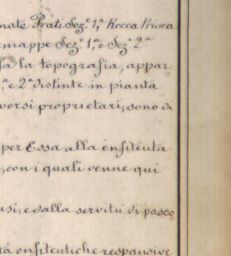 nate Prati Sez.e 1.a Rocca Priora
mappe Sez.e 1.a e Sez.e 2.a
la topografia, appar
e 2.a distinte in pianta
versi proprietari, sono
per Essa alla enfiteuta
, con i quali venne qui
usi, e dalla servitù di pasco
tà enfiteutiche responsive